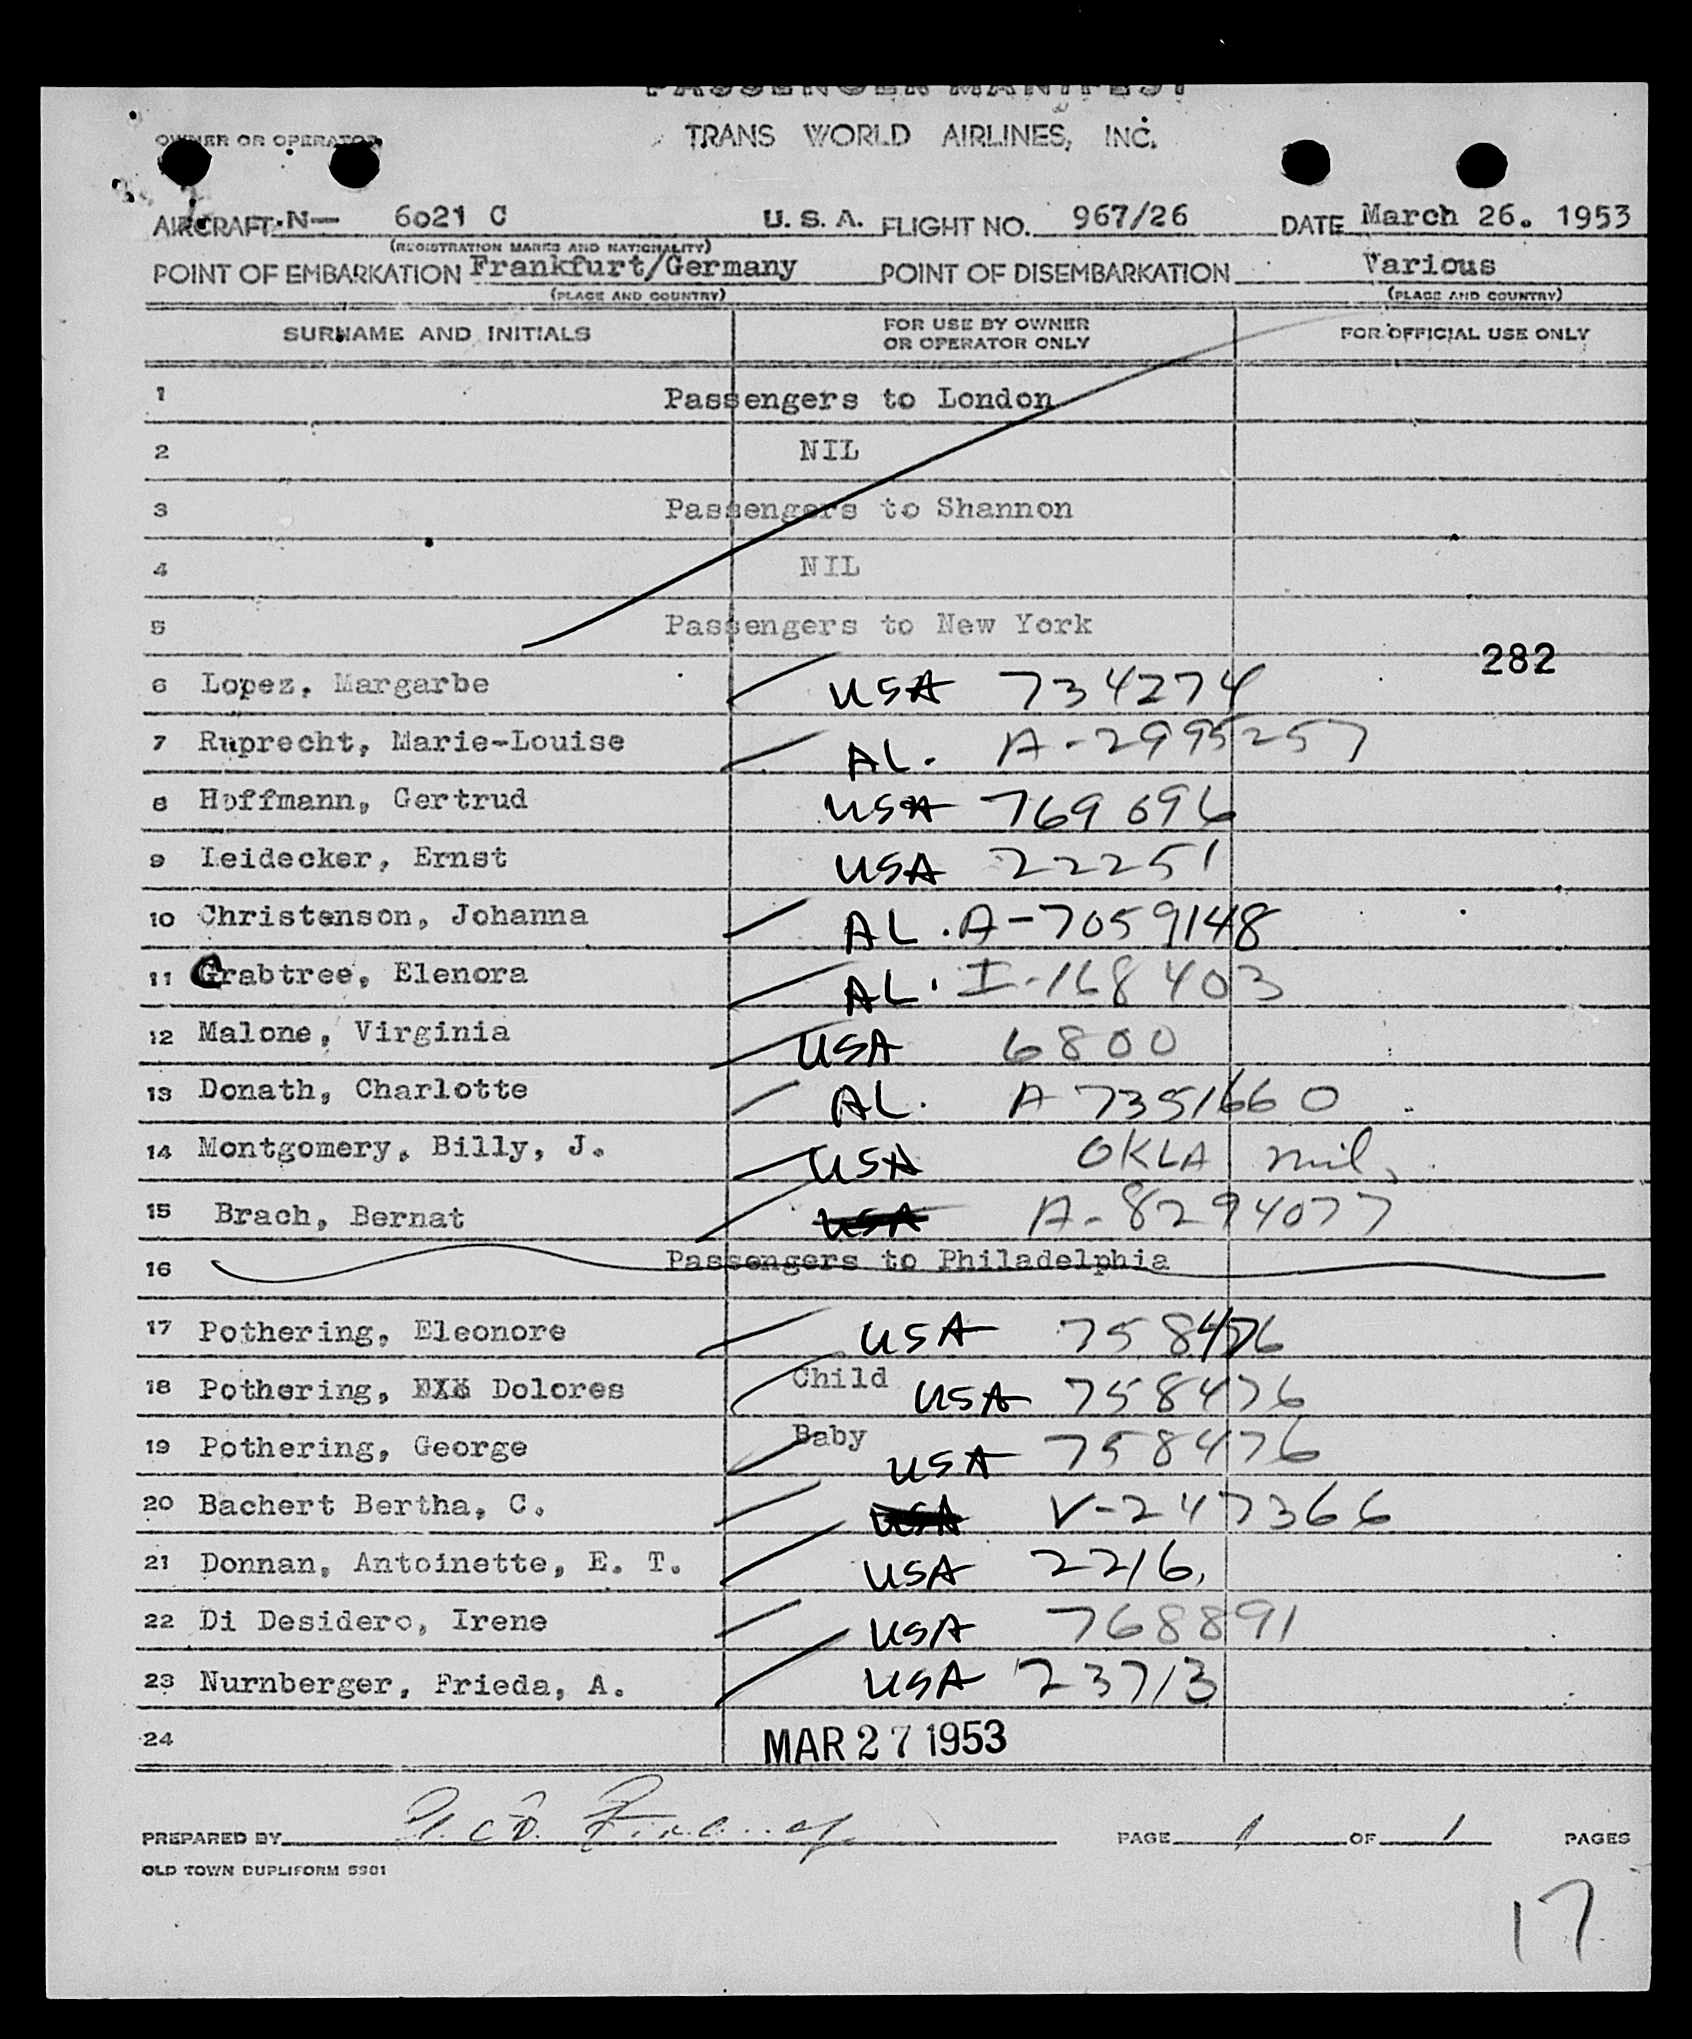 PASSENGER MANIFEST
TRANS WORLD AIRLINES, INC.
OWNER OR OPERATOR
AIRCRAFT N— 6021 C U. S. A. FLIGHT NO. 967/26 DATE March 26. 1953
(REGISTRATION MARKS AND NATIONALITY)
POINT OF EMBARKATION Frankfurt/Germany POINT OF DISEMBARKATION Various
(PLACE AND COUNTRY) (PLACE AND COUNTRY)
SURNAME AND INITIALS FOR USE BY OWNER OR OPERATOR ONLY FOR OFFICIAL USE ONLY
1 Passengers to London
2 NIL
3 Passengers to Shannon
4 NIL
5 Passengers to New York
282
6 Lopez, Margarbe USA 734274
7 Ruprecht, Marie-Louise AL. A-2995257
8 Hoffmann, Gertrud USA 769696
9 Leidecker, Ernst USA 22251
10 Christenson, Johanna AL. A-7059148
11 Crabtree, Elenora AL. I-168403
12 Malone, Virginia USA 6800
13 Donath, Charlotte AL. A 7351660
14 Montgomery, Billy, J. USA OKLA mil,
15 Brach, Bernat USA A-8294077
16 Passengers to Philadelphia
17 Pothering, Eleonore USA 758476
18 Pothering, Dolores Child USA 758476
19 Pothering, George Baby USA 758476
20 Bachert Bertha, C. USA V-247366
21 Donnan, Antoinette, E. T. USA 2216,
22 Di Desidero, Irene USA 768891
23 Nurnberger, Frieda, A. USA 23713
24 MAR 27 1953
PREPARED BY PAGE 1 OF 1 PAGES
OLD TOWN DUPLIFORM 5901
17